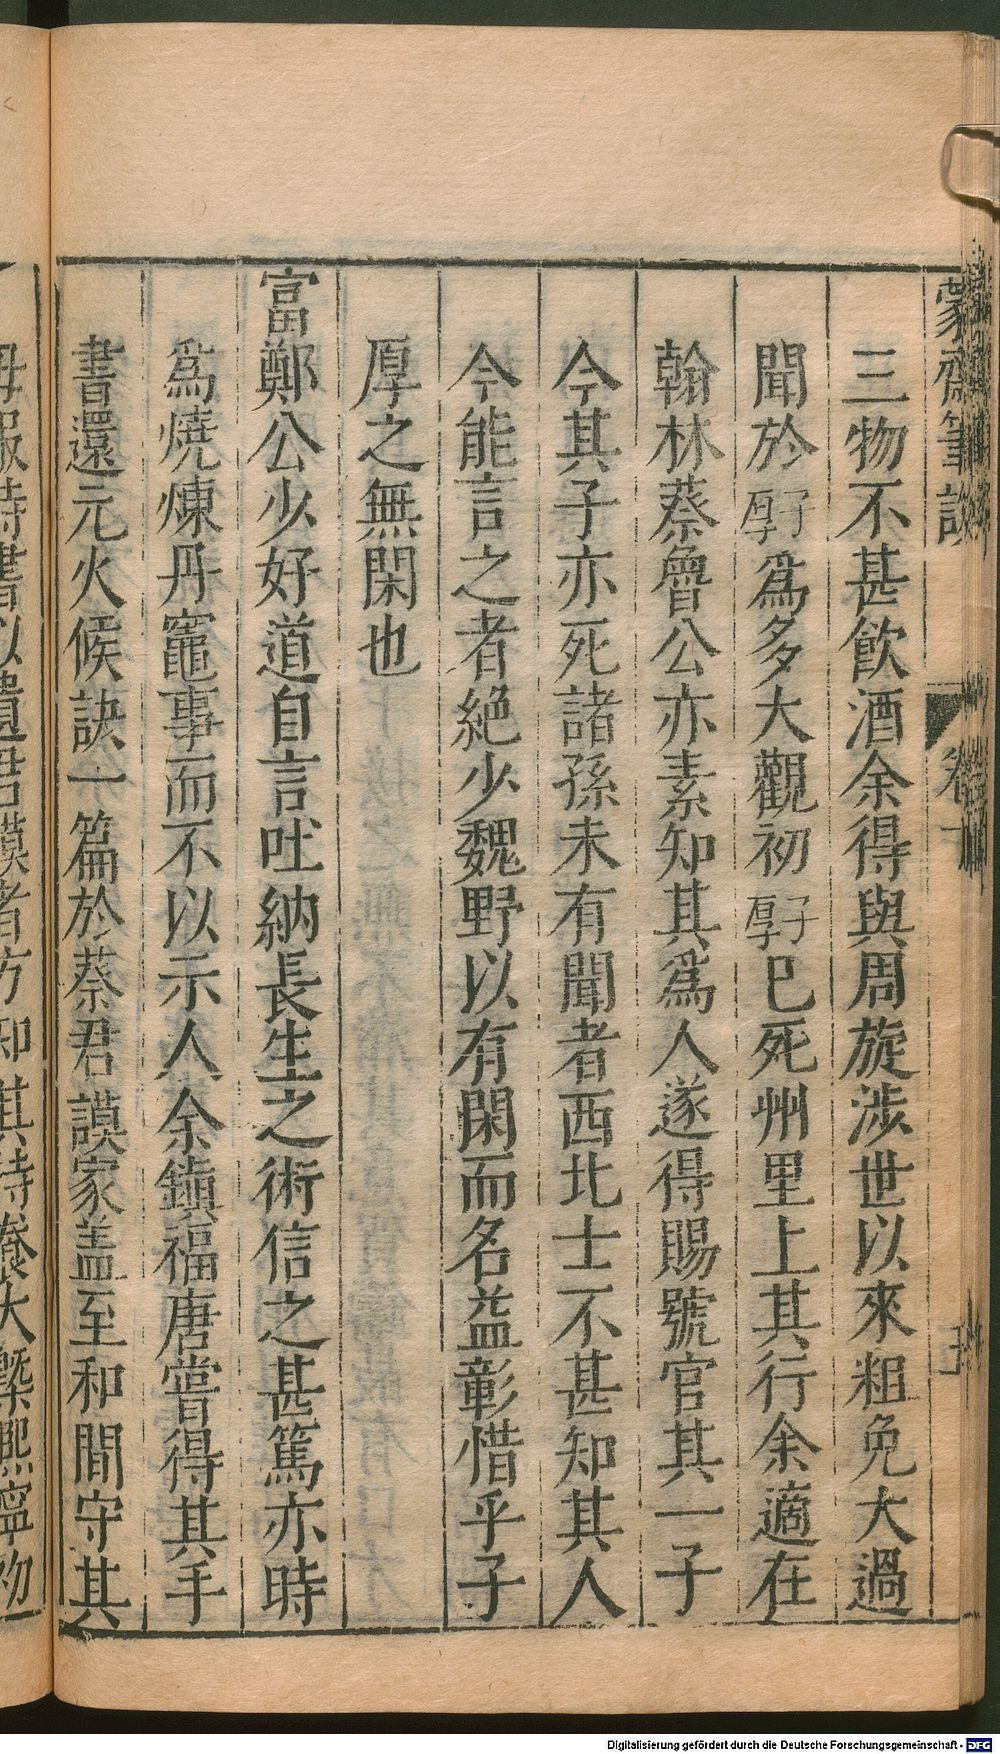 蒙齋筆談 卷下
三物不甚飲酒余得與周旋涉世以來粗免大過
聞於子厚爲多大觀初子厚已死州里上其行余適在
翰林蔡魯公亦素知其爲人遂得賜號官其一子
今其子亦死諸孫未有聞者西北士不甚知其人
今能言之者絶少魏野以有閑而名益彰惜乎子
厚之無閑也
富鄭公少好道自言吐納長生之術信之甚篤亦時
爲燒煉丹竈事而不以示人余鎮福唐嘗得其手
書還元火候訣一篇於蔡君謨家盖至和間守其
Digitalisierung gefördert durch die Deutsche Forschungsgemeinschaft - DFG